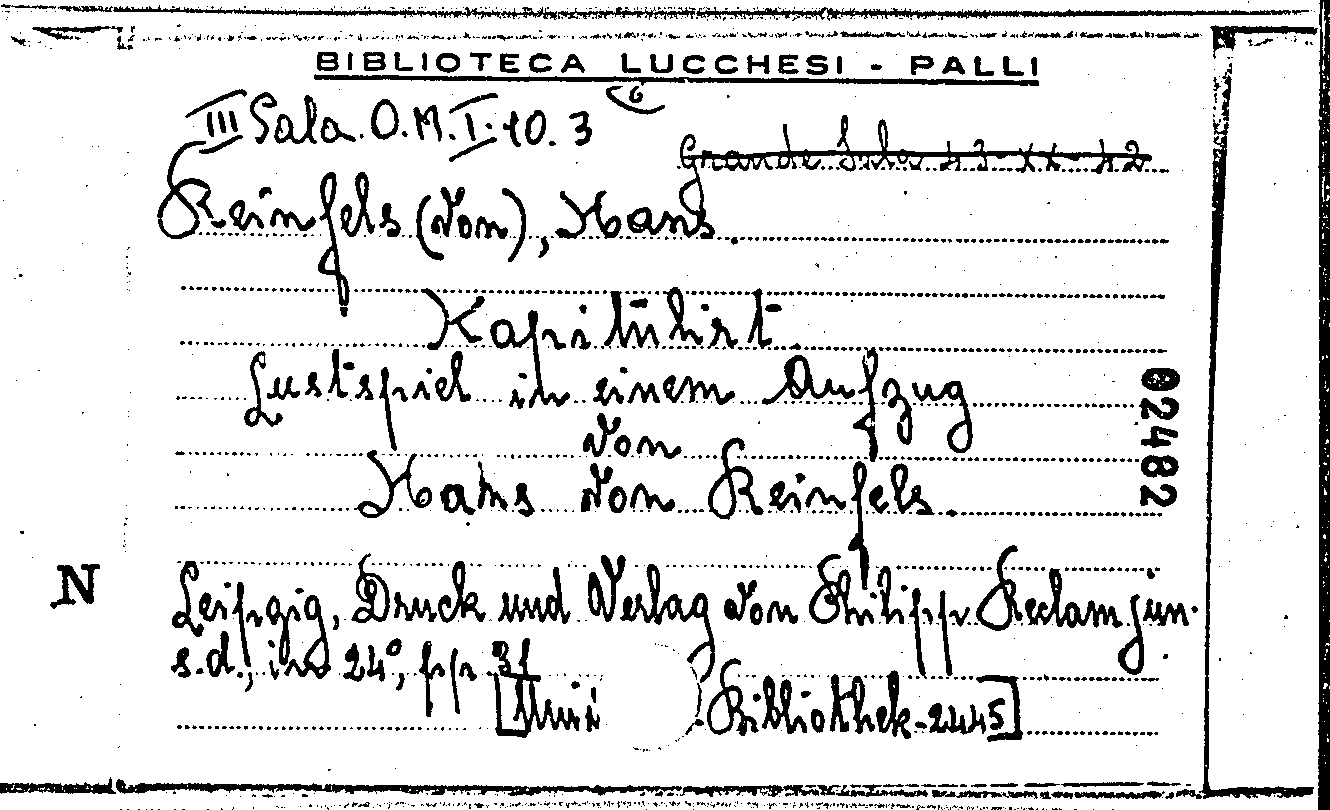 BIBLIOTECA LUCCHESI - PALLI
6
III Sala. O.M.I.10.3
Grande Sala 43-XX-42
Reinfels (von), Hans.
Kapitulirt.
Lustspiel in einem Aufzug
von
Hans von Reinfels.
02482
N
Leipzig, Druck und Verlag von Philipp Reclam jun.
s.d., in 24°, pp. 31
[Uni Bibliothek-2445]